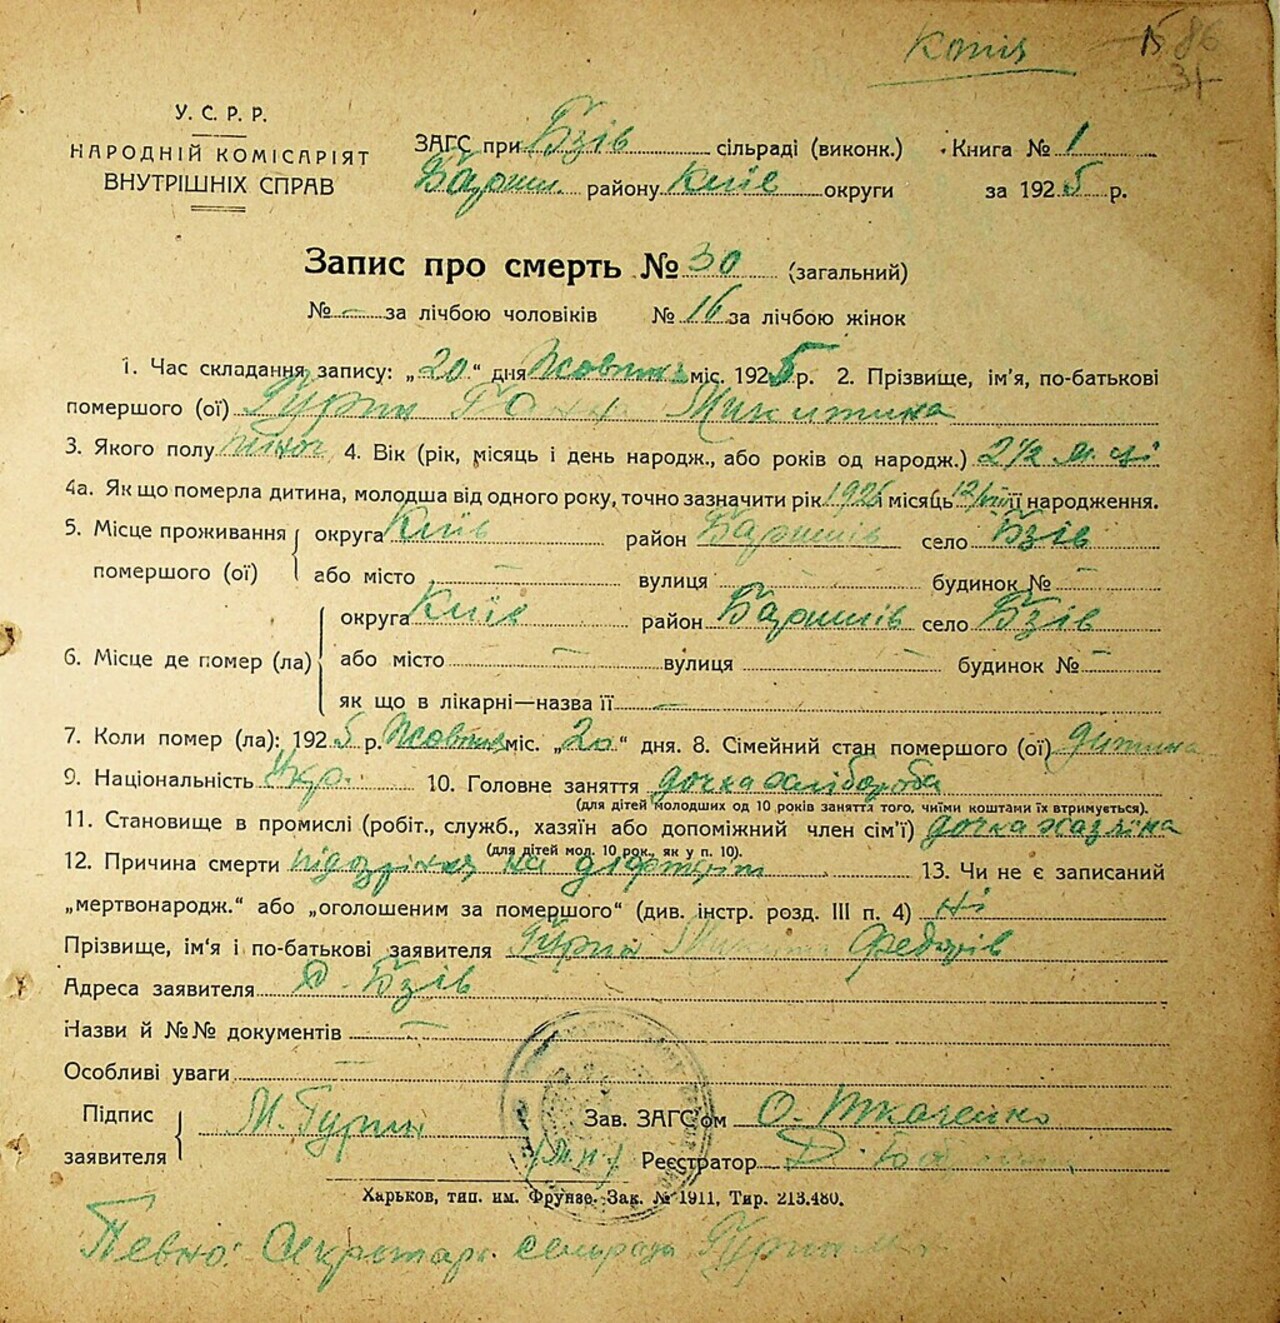 Копія 15 86
31
У. С. Р. Р.
НАРОДНІЙ КОМІСАРІЯТ
ВНУТРІШНІХ СПРАВ
ЗАГС при Бзів сільраді (виконк.) Книга № 1
Бариш. району Київ округи за 1925 р.
Запис про смерть № 30 (загальний)
№ – за лічбою чоловіків № 16 за лічбою жінок
1. Час складання запису: „20“ дня Жовтня міс. 1925 р. 2. Прізвище, ім'я, по-батькові
помершого (ої) Гурин Ганна Микитина
3. Якого полу жіноч 4. Вік (рік, місяць і день народж., або років од народж.) 2½ м-ці
4а. Як що померла дитина, молодша від одного року, точно зазначити рік місяць її народження.
5. Місце проживання округа Київ район Баришів село Бзів
помершого (ої) або місто – вулиця – будинок № –
округа Київ район Баришів село Бзів
6. Місце де помер (ла) або місто – вулиця – будинок № –
як що в лікарні—назва її –
7. Коли помер (ла): 1925 р. Жовтня міс. „20“ дня. 8. Сімейний стан помершого (ої) дитина
9. Національність Укр. 10. Головне заняття дочка хлібороба
(для дітей молодших од 10 років заняття того, чиїми коштами їх втримується).
11. Становище в промислі (робіт., служб., хазяїн або допоміжний член сім'ї) дочка хазяїна
(для дітей мол. 10 рок., як у п. 10).
12. Причина смерти підозріння на 13. Чи не є записаний
„мертвонародж.“ або „оголошеним за помершого“ (див. інстр. розд. III п. 4) ні
Прізвище, ім'я і по-батькові заявителя Гурин Микита Федорів
Адреса заявителя с. Бзів
Назви й №№ документів –
Особливі уваги –
Підпис М. Гурин Зав. ЗАГС'ом О. Ткаченко
заявителя (М.п.) Реєстратор Д.
Харьков, тип. им. Фрунзе. Зак. № 1911, Тир. 213.480.
Певно: Секретарь сельради